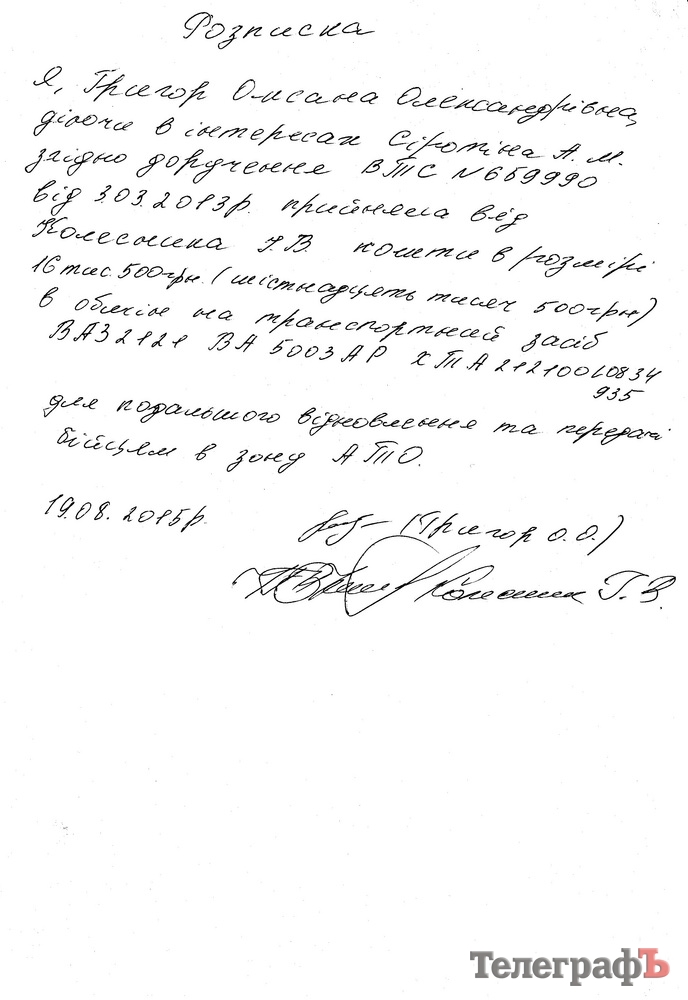 Розписка
Я, Григор Оксана Олександрівна,
діючи в інтересах Сіротіна А.М.
згідно доручення ВТС N 659990
від 3.03.2013р. прийняла від
Колесника Г.В. кошти в розмірі
16 тис 500грн. (шістнадцять тисяч 500грн)
в обмін на транспортний засіб
ВАЗ 2121 ВА 5003 АР ХТА 212100L0834
935
для подальшого відновлення та передачі
бійцям в зону АТО.
19.08.2015р. (Григор О.О.)
Колесник Г.В.
ТелеграфЪ